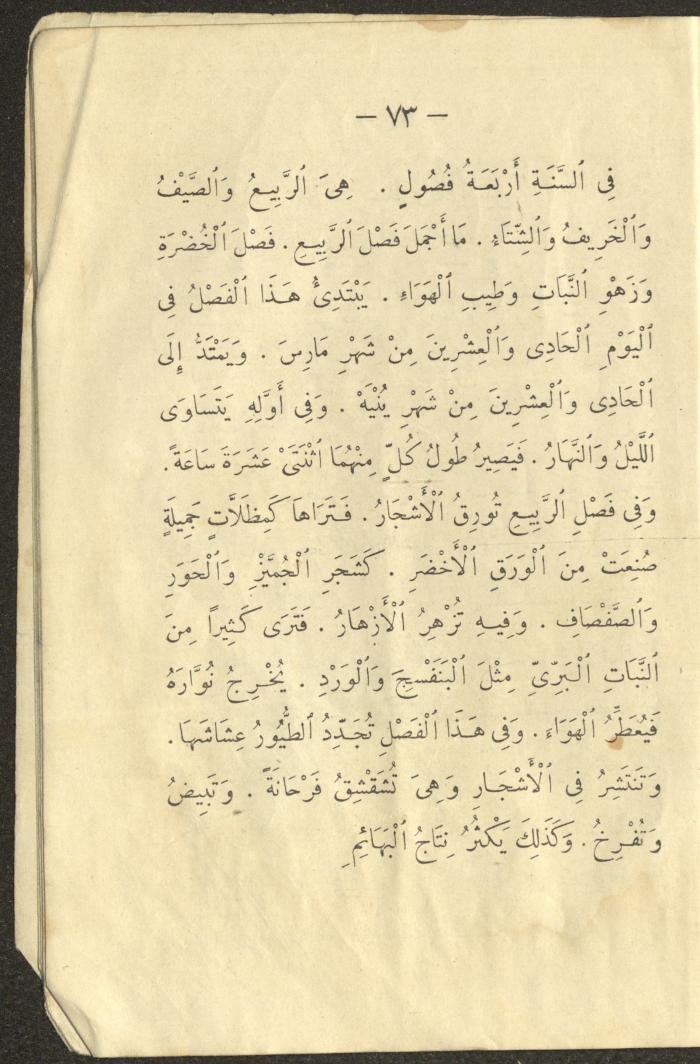 — ٧٣ —
فِى ٱلسَّنَةِ أَرْبَعَةُ فُصُولٍ . هِىَ ٱلرَّبِيعُ وَٱلصَّيْفُ
وَٱلْخَرِيفُ وَٱلشِّتَاءُ . مَا أَجْمَلَ فَصْلَ ٱلرَّبِيعِ . فَصْلَ ٱلْخُضْرَةِ
وَزَهْوِ ٱلنَّبَاتِ وَطِيبِ ٱلْهَوَاءِ . يَبْتَدِئُ هَذَا ٱلْفَصْلُ فِى
ٱلْيَوْمِ ٱلْحَادِى وَٱلْعِشْرِينَ مِنْ شَهْرِ مَارِسَ . وَيَمْتَدُّ إِلَى
ٱلْحَادِى وَٱلْعِشْرِينَ مِنْ شَهْرِ يُنْيَهْ . وَفِى أَوَّلِهِ يَتَسَاوَى
ٱللَّيْلُ وَٱلنَّهَارُ . فَيَصِيرُ طُولُ كُلٍّ مِنْهُمَا ٱثْنَتَىْ عَشَرَةَ سَاعَةً .
وَفِى فَصْلِ ٱلرَّبِيعِ تُورِقُ ٱلْأَشْجَارُ . فَتَرَاهَا كَمِظَلَّاتٍ جَمِيلَةٍ
صُنِعَتْ مِنَ ٱلْوَرَقِ ٱلْأَخْضَرِ . كَشَجَرِ ٱلْجُمَّيْزِ وَٱلْحَوَرِ
وَٱلصَّفْصَافِ . وَفِيهِ تُزْهِرُ ٱلْأَزْهَارُ . فَتَرَى كَثِيرًا مِنَ
ٱلنَّبَاتِ ٱلْبَرِّىِّ مِثْلَ ٱلْبَنَفْسِجِ وَٱلْوَرْدِ . يُخْرِجُ نُوَّارَهُ
فَيُعَطِّرُ ٱلْهَوَاءَ . وَفِى هَذَا ٱلْفَصْلِ تُجَدِّدُ ٱلطُّيُورُ عِشَاشَهَا .
وَتَنْتَشِرُ فِى ٱلْأَشْجَارِ وَهِىَ تُشَقْشِقُ فَرْحَانَةً . وَتَبِيضُ
وَتُفْرِخُ . وَكَذَلِكَ يَكْثُرُ نِتَاجُ ٱلْبَهَائِمِ